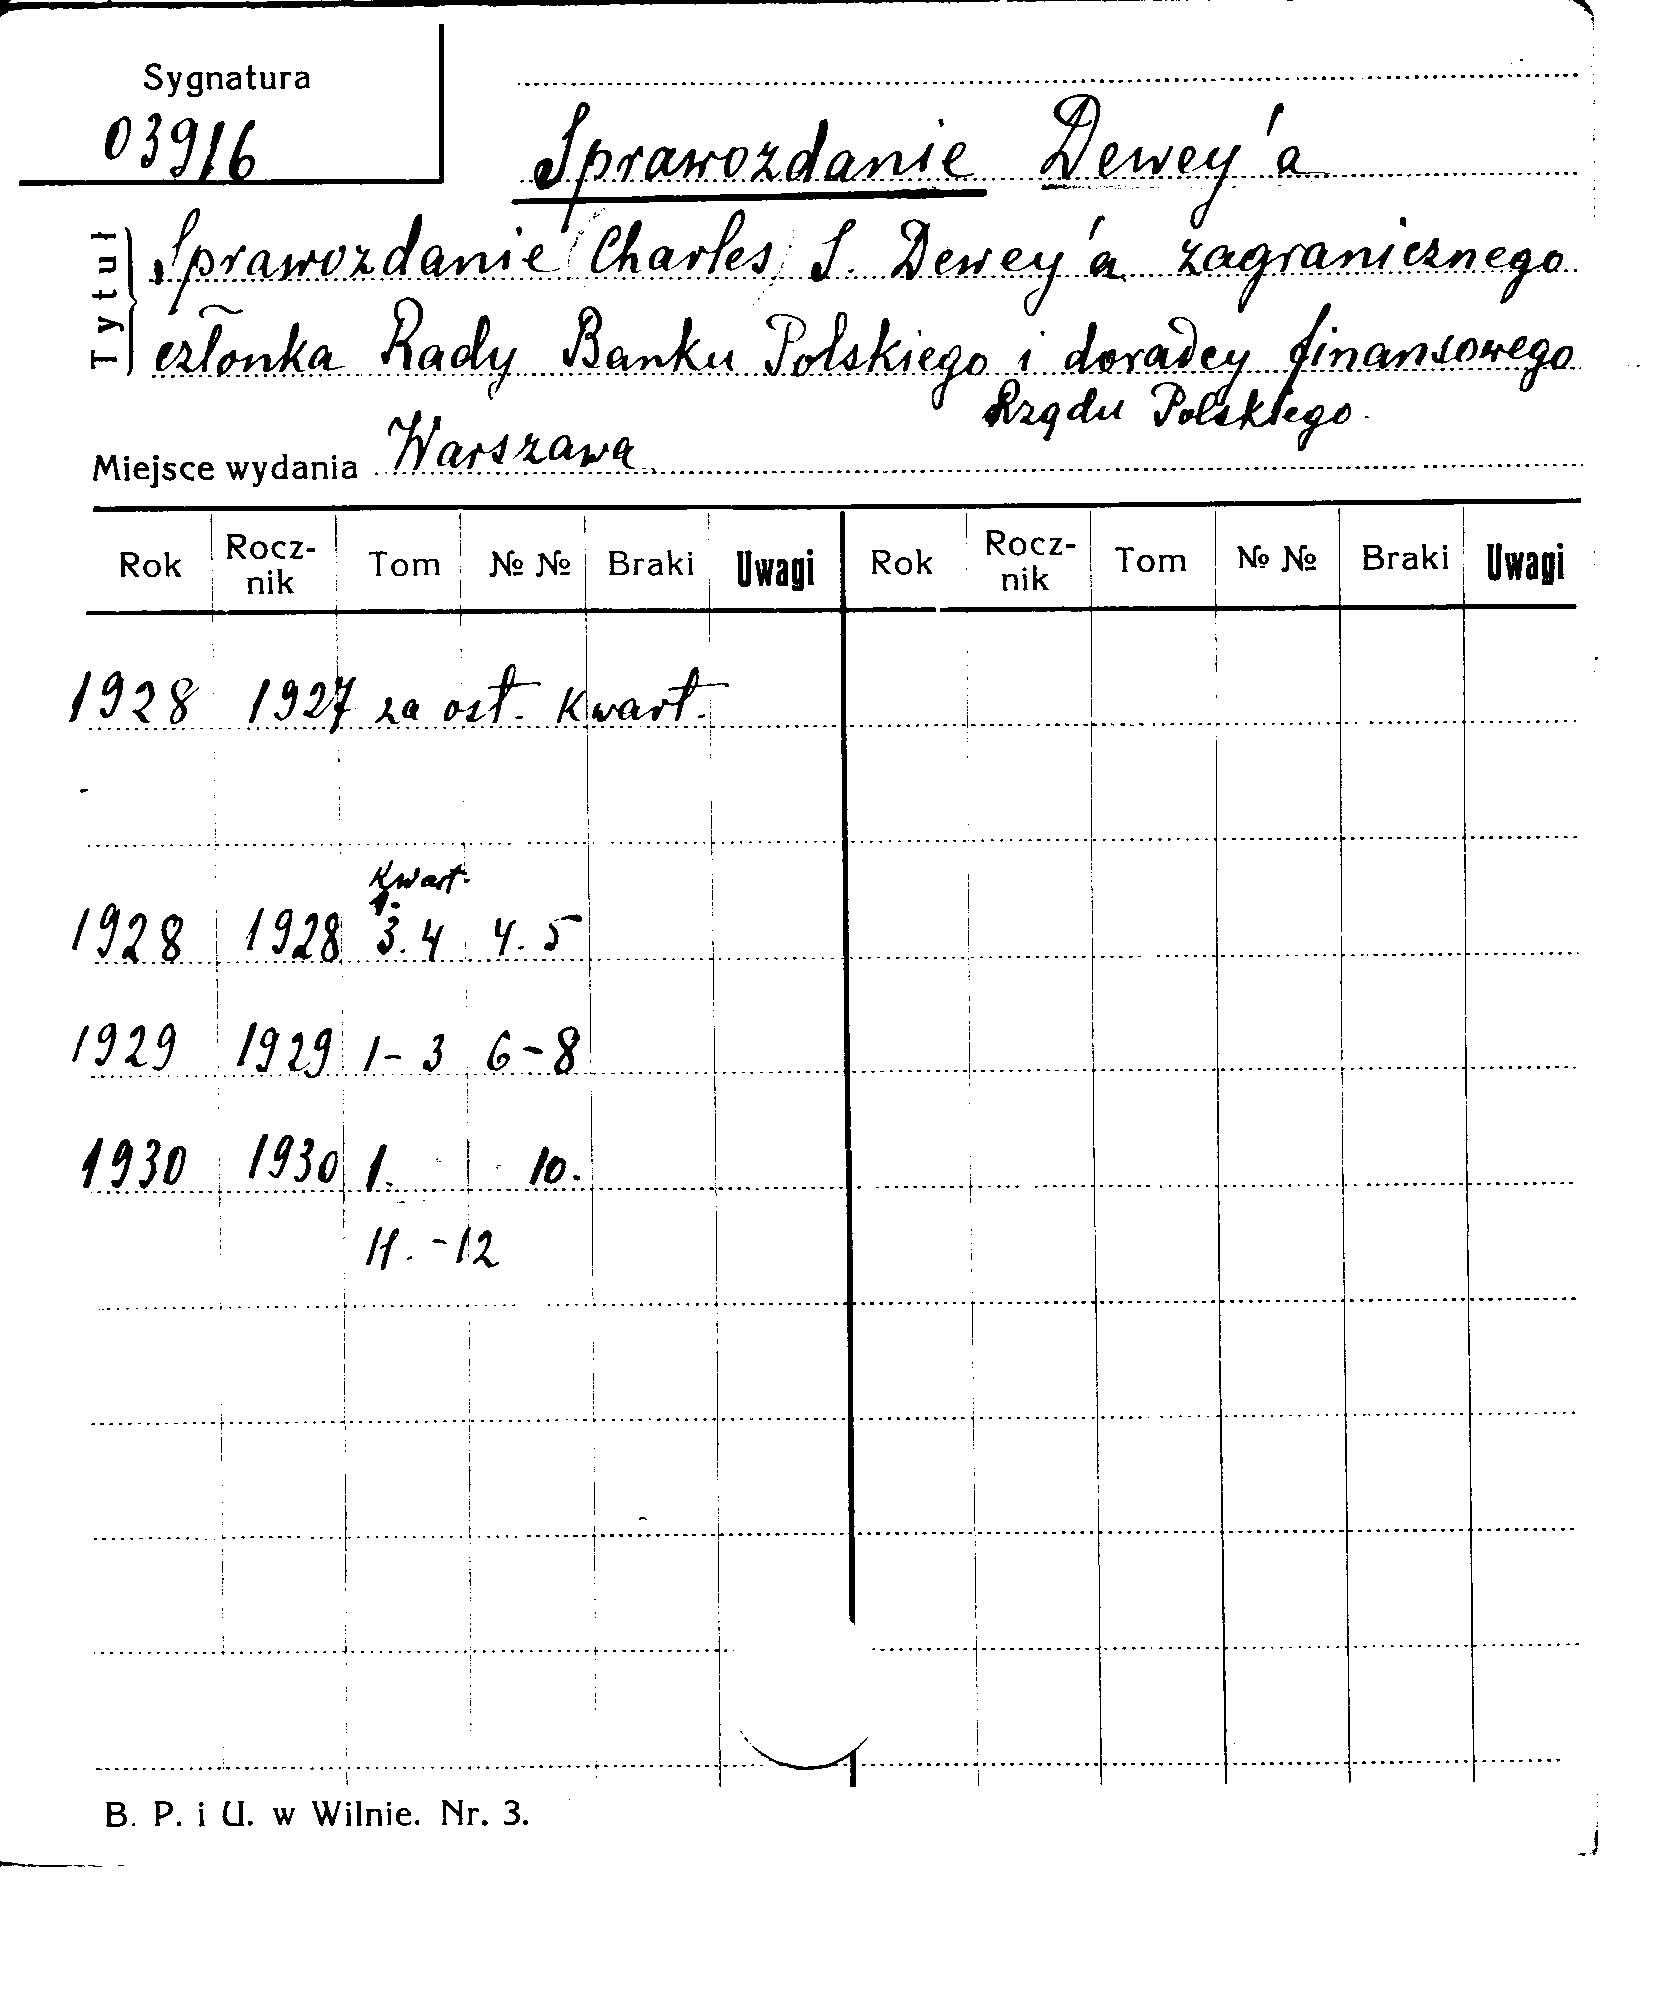 Sygnatura
03916
Sprawozdanie Dewey'a
Tytuł
Sprawozdanie (Charles) S. Dewey'a zagranicznego
członka Rady Banku Polskiego i doradcy finansowego
Rządu Polskiego.
Miejsce wydania Warszawa
Rok Rocz-nik Tom № № Braki Uwagi Rok Rocz-nik Tom № № Braki Uwagi
1928 1927 za ost. kwart.
Kwart.
1.
1928 1928 3.4 4.5
1929 1929 1-3 6-8
1930 1930 1. 10.
11.-12
B. P. i U. w Wilnie. Nr. 3.